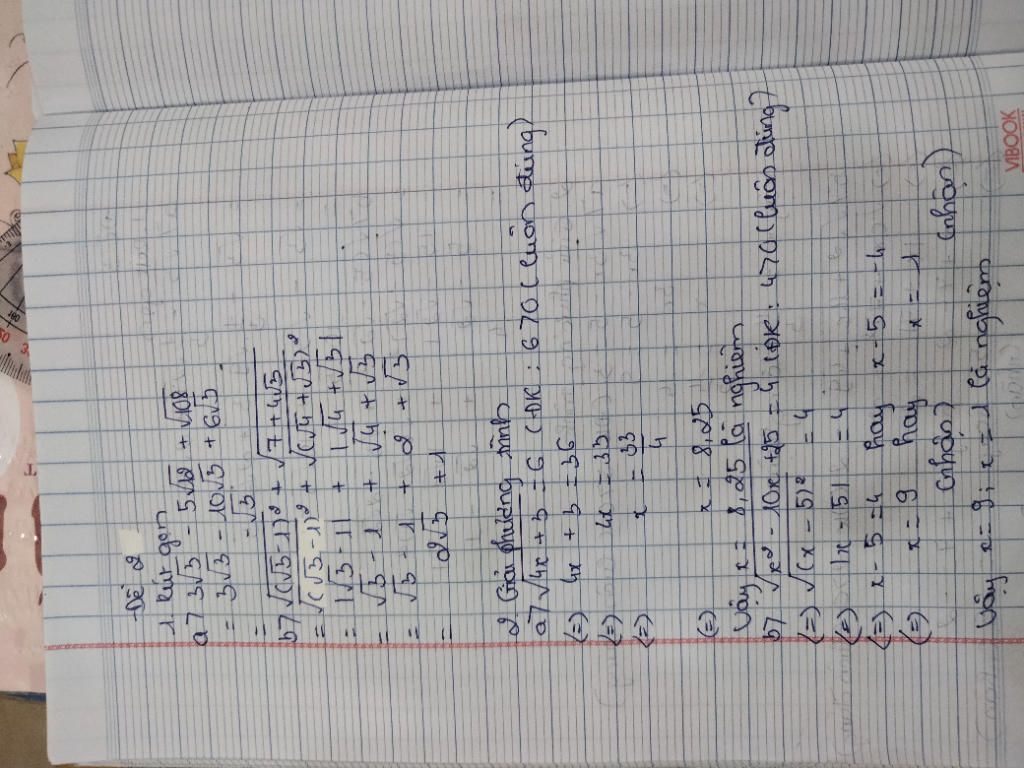 Đề 2
1 Rút gọn
a7 3√3 - 5√12 + √108
= 3√3 - 10√3 + 6√3
= -√3
b7 √(√3-1)² + √7+4√3
= √(√3-1)² + √(√4+√3)²
= |√3-1| + |√4+√3|
= √3-1 + √4+√3
= √3-1 + 2+√3
= 2√3 +1
2 Giải phương trình
a7 √4x+3 = 6 (ĐK: 670 (luôn đúng)
(=) 4x+3 = 36
(=) 4x = 33
(=) x = 33/4
(=) x = 8,25
Vậy x = 8,25 là nghiệm
b7 √x²-10x+25 = 4 (ĐK: 470 (luôn đúng)
(=) √(x-5)² = 4
(=) |x-5| = 4
(=) x-5=4 hay x-5=-4
(=) x=9 hay x= 1
(nhận) (nhận)
Vậy x=9; x=1 là nghiệm
VIBOOK